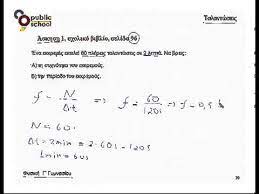 public school
Ταλαντώσεις
Άσκηση 1, σχολικό βιβλίο, σελίδα 96
Ένα εκκρεμές εκτελεί 60 πλήρεις ταλαντώσεις σε 2 λεπτά. Να βρεις:
Α) τη συχνότητα του εκκρεμούς.
Β) την περίοδο του εκκρεμούς.
f = N/Δt ⇒ f = 60/120s ⇒ f = 0,5
N = 60
Δt = 2min = 2·60s = 120s
1min = 60s
Φυσική Γ΄ Γυμνασίου